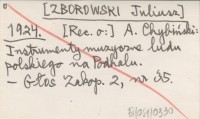 [ZBOROWSKI Juliusz]
1924. [Rec. o:] A. Chybiński:
Instrumenty muzyczne ludu
polskiego na Podhalu.
- Głos Zakop. 2, nr 35.